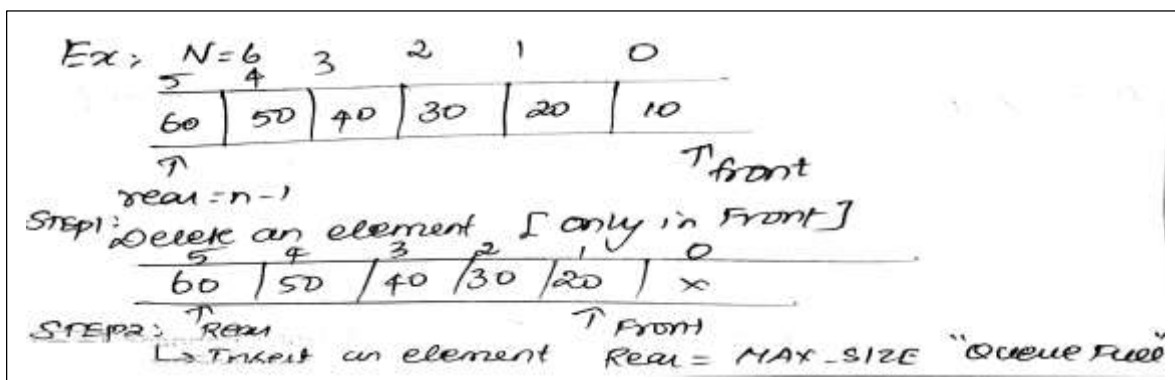 Ex: N=6
5 4 3 2 1 0
60 50 40 30 20 10
↑ ↑ front
rear = n-1
STEP1: Delete an element [only in Front]
5 4 3 2 1 0
60 50 40 30 20 x
↑ Rear ↑ Front
STEP2:
↳ Insert an element Rear = MAX_SIZE "Queue Full"